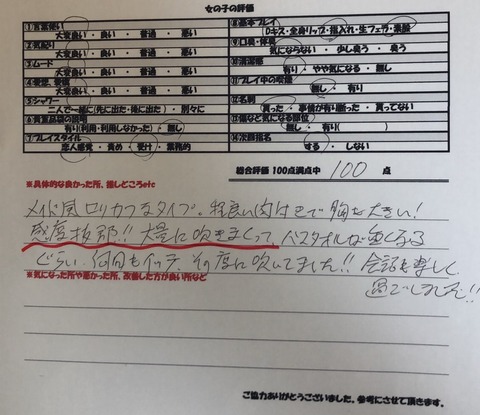 女の子の評価
①言葉使い
大変良い・良い・普通・悪い
②気配り
大変良い・良い・普通・悪い
③ムード
大変良い・良い・普通・悪い
大変良い・良い・普通・悪い
⑤シャワー
二人で一緒に(先に出た・後に出た)・別々に
⑥貴重品袋の説明
有り(利用・利用しなかった)・無し
⑦プレイスタイル
恋人感覚・責め・受け・業務的
⑧基本プレイ
Dキス・全身リップ・指入れ・生フェラ・素股
⑨口臭・体臭
気にならない・少し臭う・臭う
⑩清潔感
有り・やや気になる・無し
⑪プレイ中の
無し・有り
⑫名刺
貰った・事情が有り断った・貰ってない
⑬傷など気になる部位
無し・有り( )
⑭次回指名
する・しない
総合評価 100点満点中 100 点
※具体的な良かった所、推しどころetc
メイド風ロリカワタイプ。程良い肉付きで胸も大きい!
感度抜群!! 大量に吹きまくって バスタオルが重くなる
ぐらい 何回もイッテ、その度に吹いてました!! 会話も楽しく
過ごしました!!
※気になった所や悪かった所、改善した方が良い所など
ご協力ありがとうございました。参考にさせて頂きます。